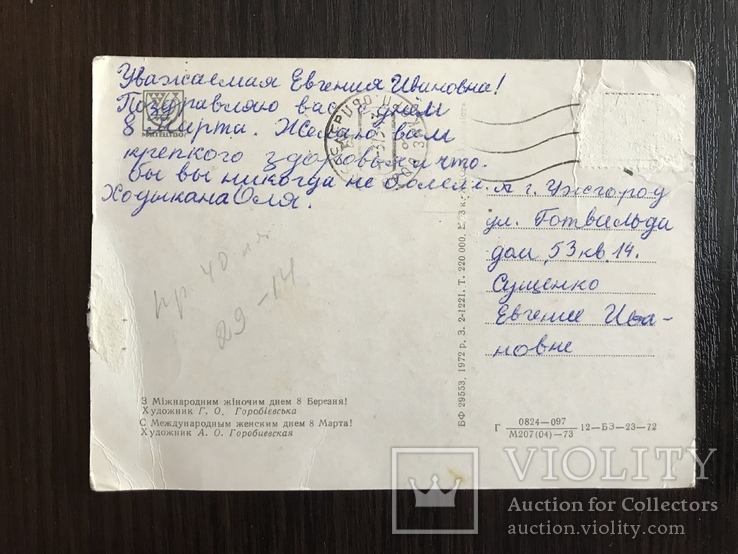 Уважаемая Евгения Ивановна!
Поздравляю вас с днём
8 Марта. Желаю вам
крепкого здоровья и что.
бы вы никогда не болели.
Ходыкана Оля.
г. Ужгород
ул. Готвальда
дом, 53 кв. 14.
Сущенко
Евгение Ива-
новне
пр. 40 лет
29-14
З Міжнародним жіночим днем 8 Березня!
Художник Г. О. Горобієвська
С Международным женским днем 8 Марта!
Художник А. О. Горобиевская
БФ 29553. 1972 р. З. 2-1221. Т. 220 000. 3 к.
Г 0824-097 12-БЗ-23-72
М207(04)-73
VIOLITY
Auction for Collectors
auction.violity.com